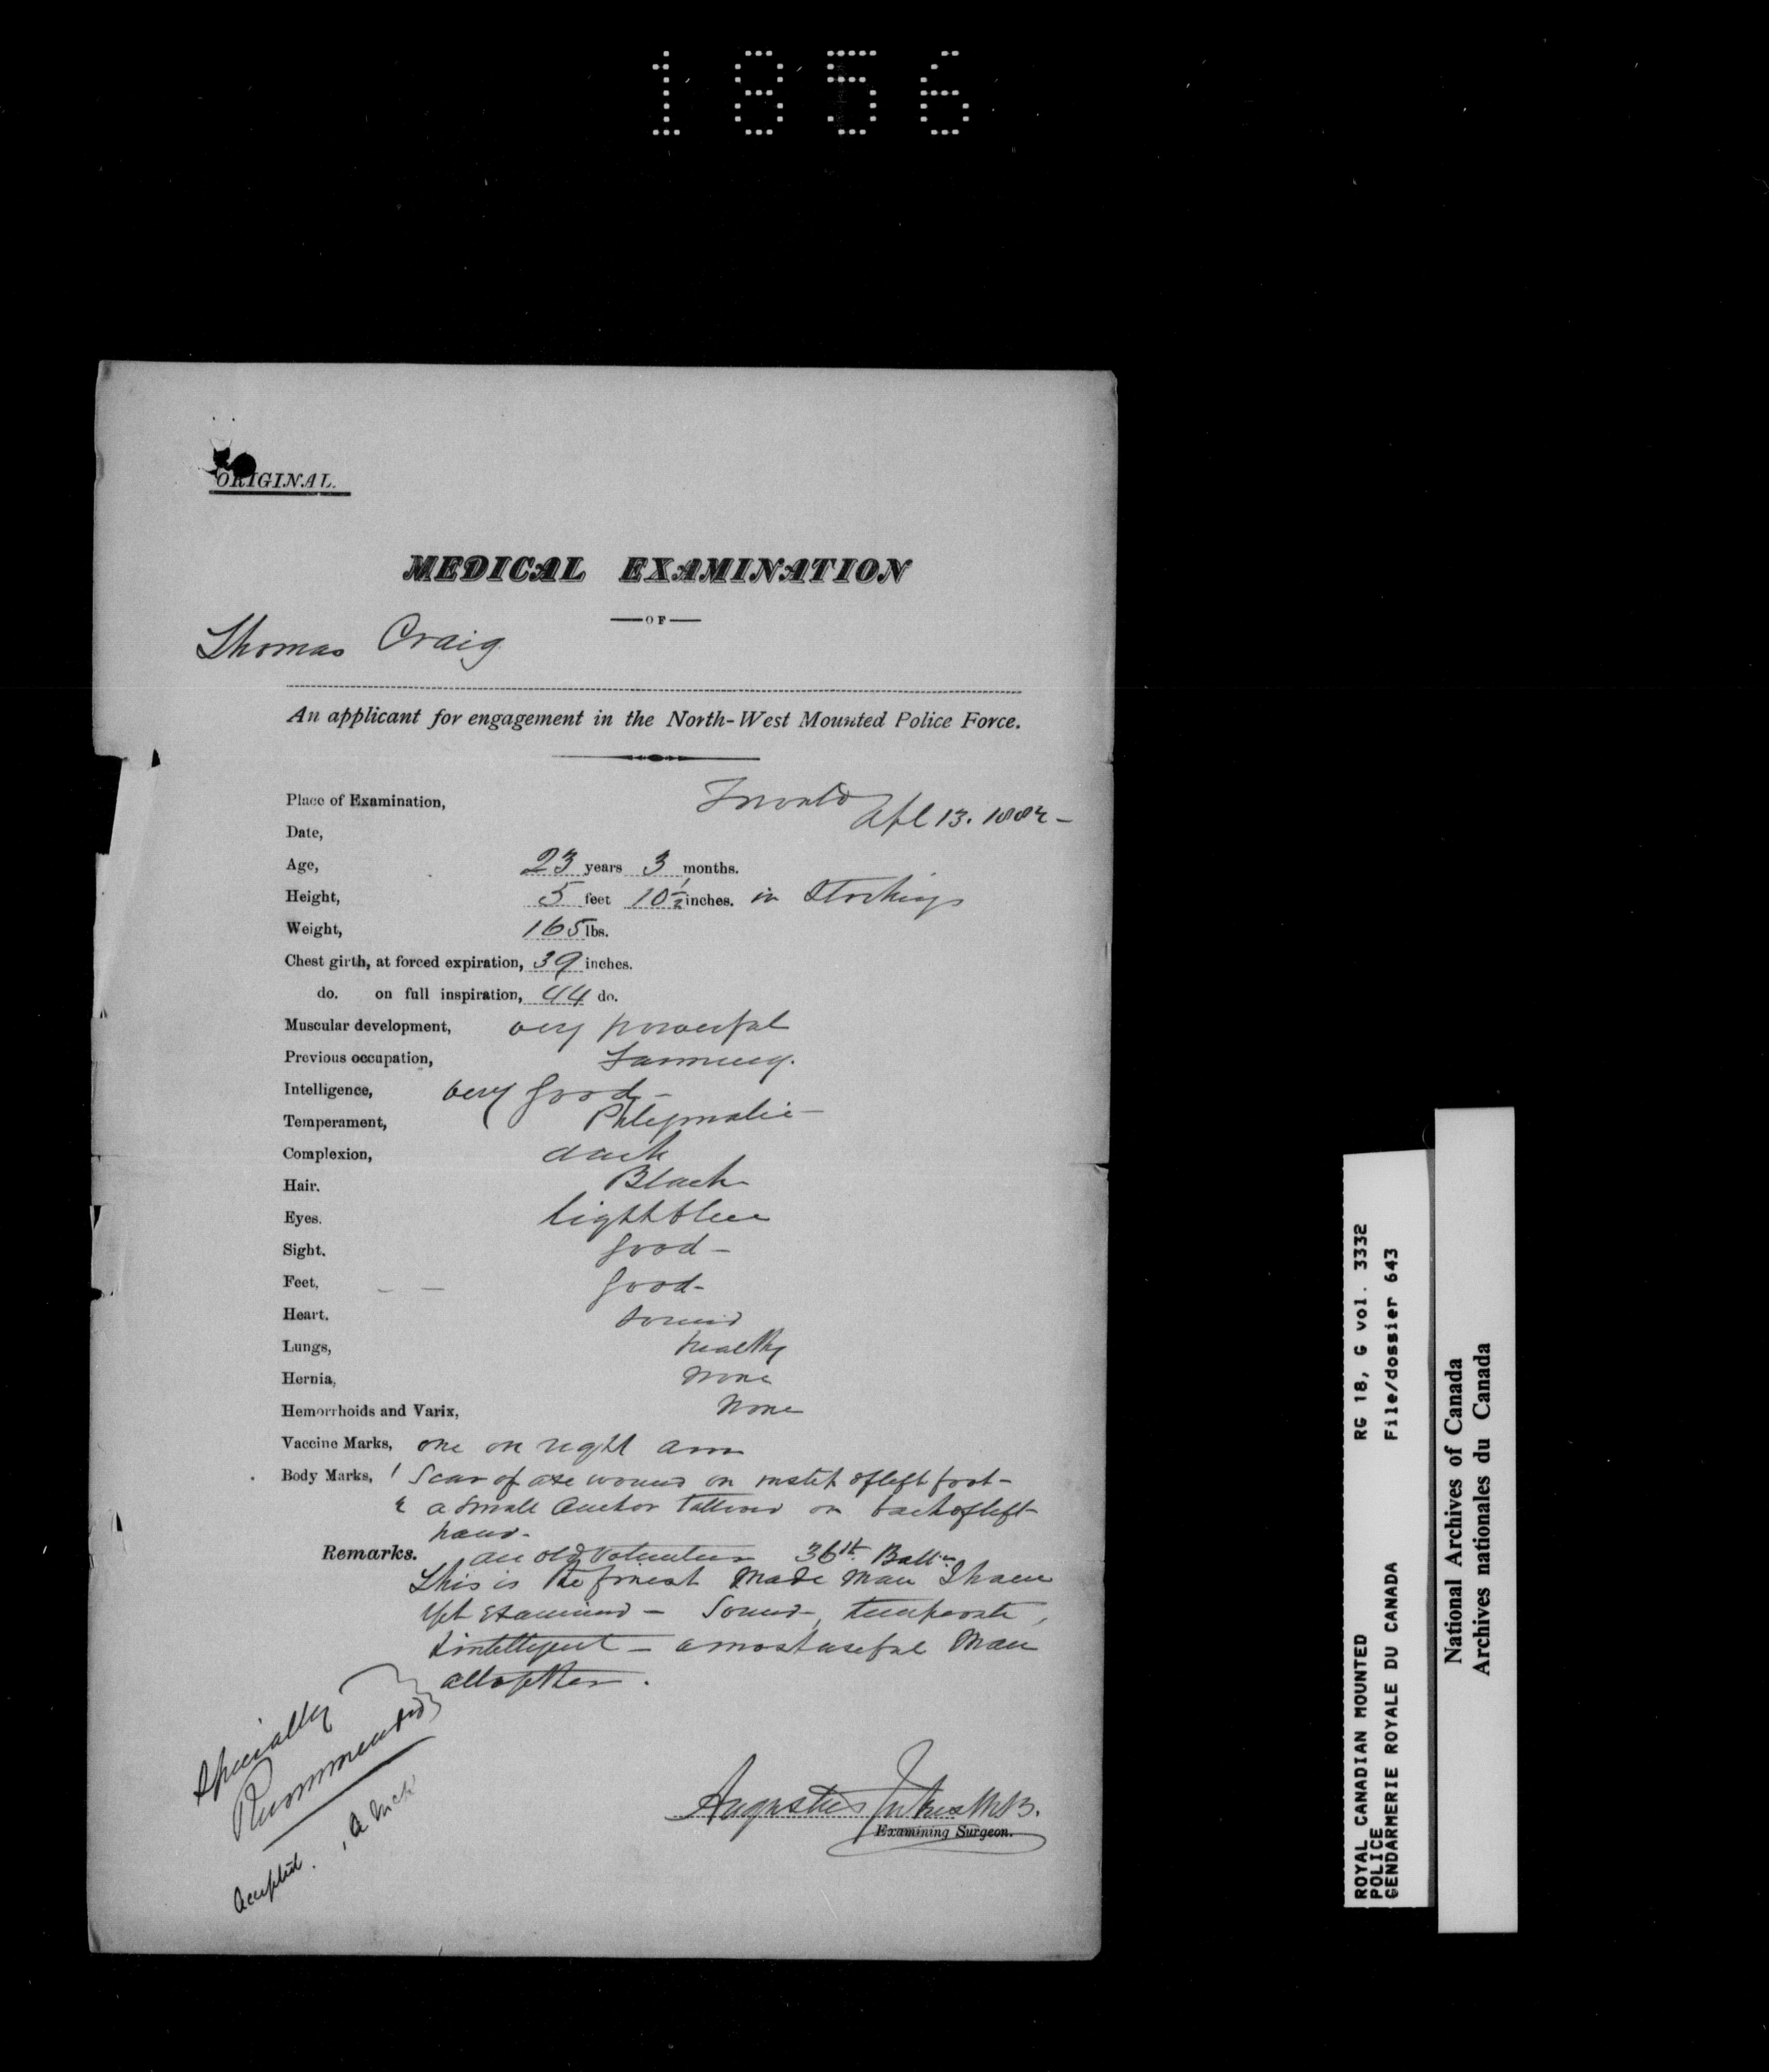 1856
ORIGINAL.
MEDICAL EXAMINATION
OF
Thomas Craig
An applicant for engagement in the North-West Mounted Police Force.
Place of Examination, Toronto
Date, Apl 13. 1882 -
Age, 23 years 3 months.
Height, 5 feet 10 1/2 inches. in Stockings
Weight, 165 lbs.
Chest girth, at forced expiration, 39 inches.
do. on full inspiration, 44 do.
Muscular development, very powerful
Previous occupation, Farming.
Intelligence, very good -
Temperament, Phlegmatic -
Complexion, dark
Hair. Black
Eyes. light blue
Sight. good -
Feet, good -
Heart. sound
Lungs, healthy
Hernia, None
Hemorrhoids and Varix, None
Vaccine Marks, one on right arm
Body Marks, 1 Scar of axe wound on instep of left foot -
& a small anchor tattooed on back of left
hand -
Remarks. An old Volunteer 36th. Battn.
This is the finest made man I have
yet examined - Sound, temperate,
& intelligent - a most useful man
altogether.
Specially
Recommended
Accepted.
Augustus Jukes M.B.
Examining Surgeon.
ROYAL CANADIAN MOUNTED RG 18, G vol. 3332
POLICE
GENDARMERIE ROYALE DU CANADA File/dossier 643
National Archives of Canada
Archives nationales du Canada